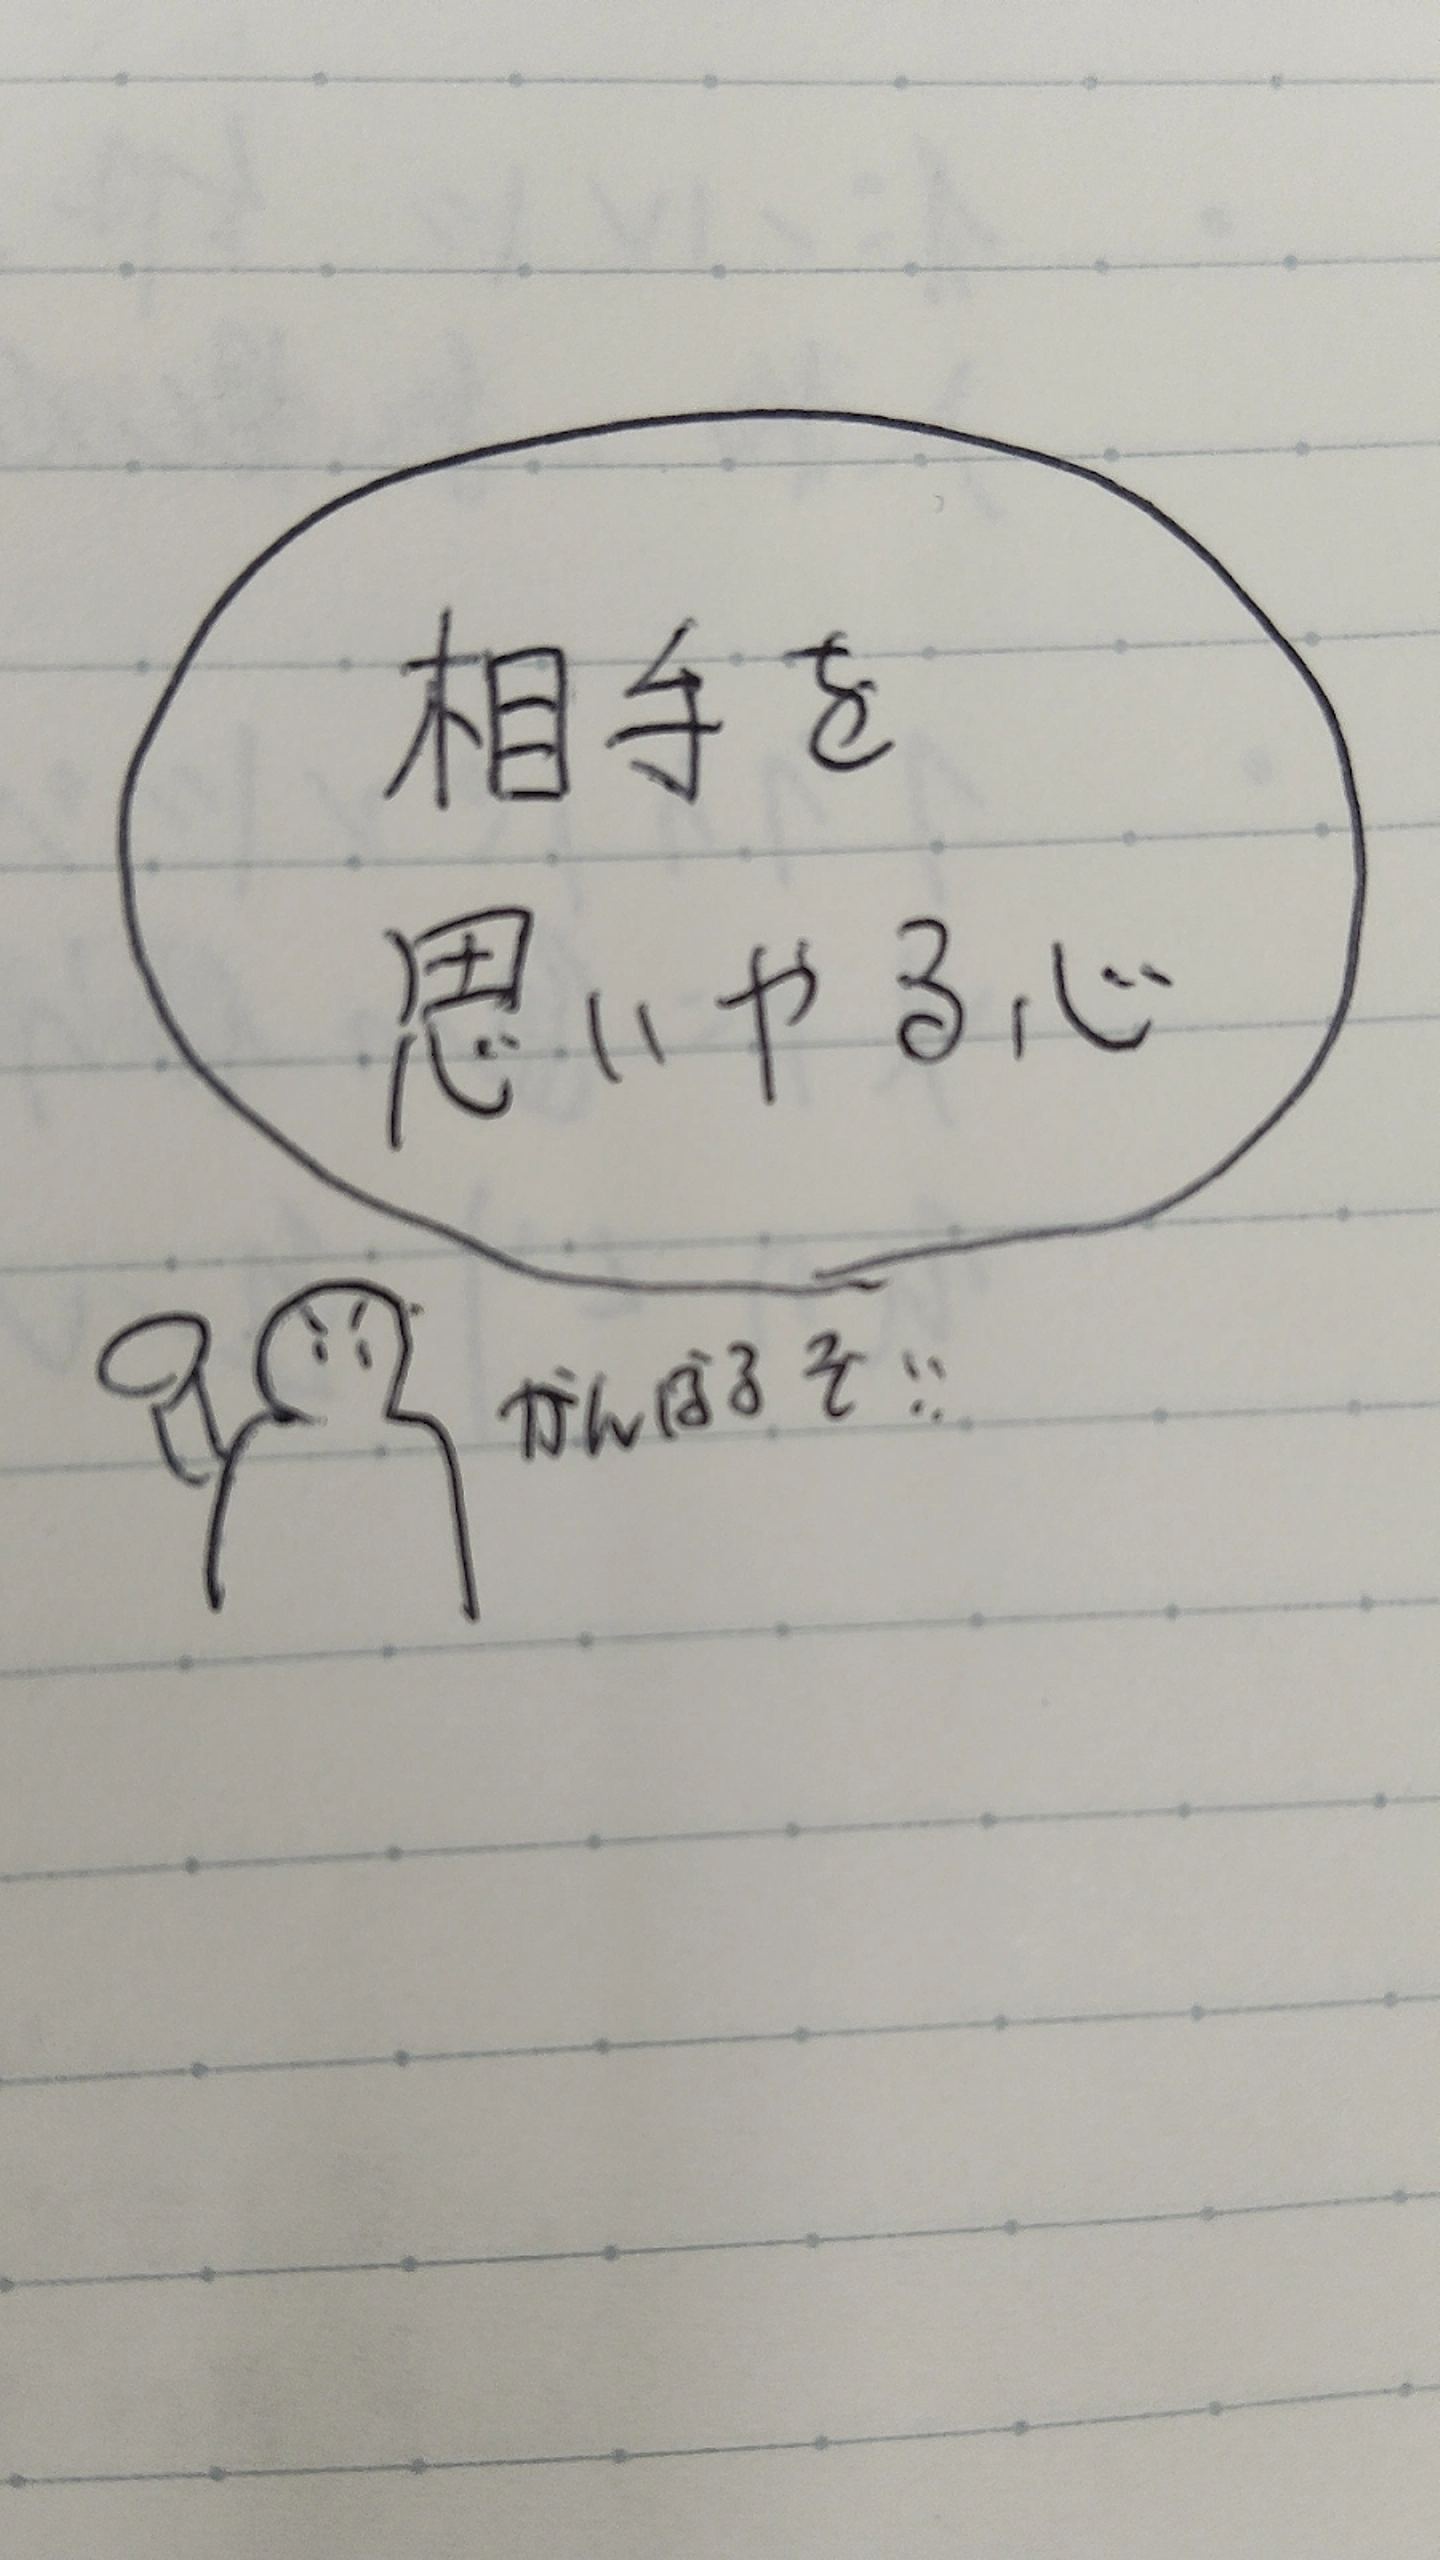 相手を
思いやる心
がんばるぞ!!